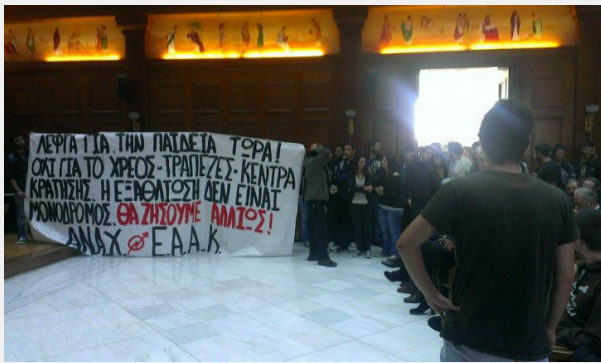 ΛΕΦΤΑ ΓΙΑ ΤΗΝ ΠΑΙΔΕΙΑ ΤΩΡΑ!
ΟΧΙ ΓΙΑ ΤΟ ΧΡΕΟΣ-ΤΡΑΠΕΖΕΣ-ΚΕΝΤΡΑ
ΚΡΑΤΗΣΗΣ. Η ΕΞΑΘΛΙΩΣΗ ΔΕΝ ΕΙΝΑΙ
ΜΟΝΟΔΡΟΜΟΣ. ΘΑ ΖΗΣΟΥΜΕ ΑΛΛΙΩΣ!
ΑΝΑ.Χ Ε.Α.Α.Κ.